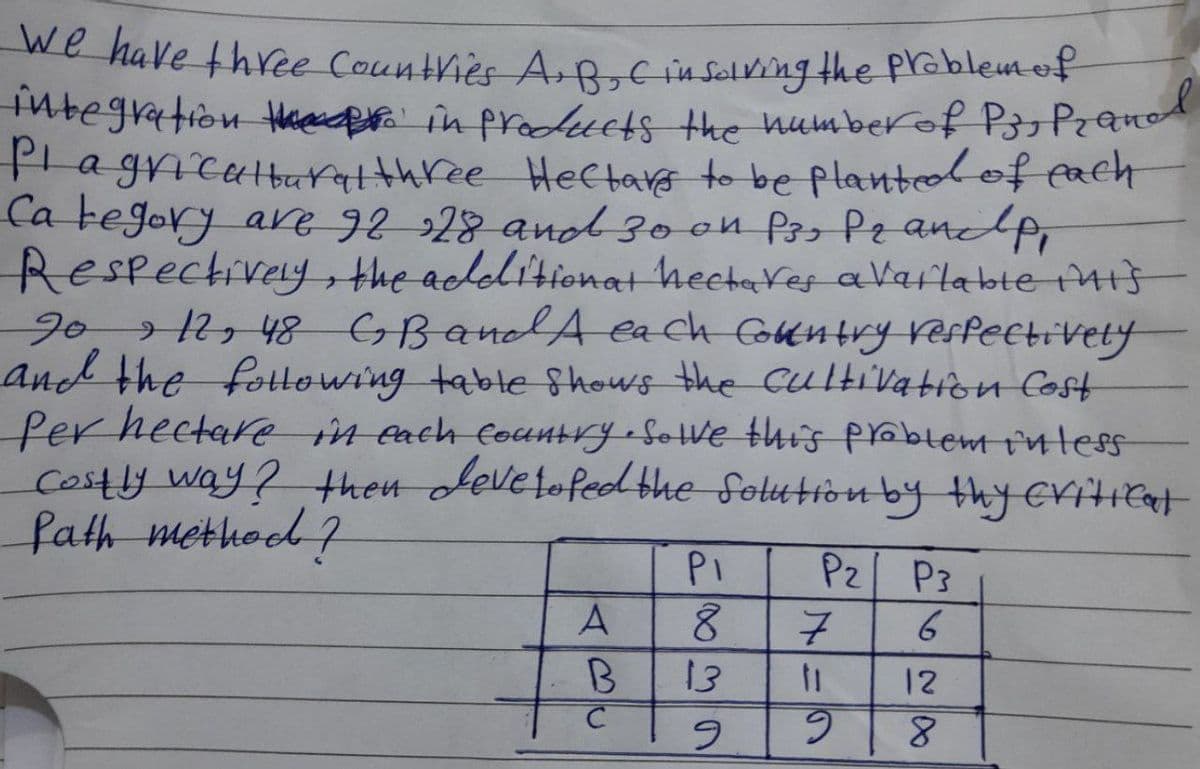 We have three Countries A, B, C in solving the problem of
integration in products the number of P3, P2 and
P1 agricultural three Hectars to be planted of each
Category are 92, 28 and 30 on P3, P2 and P1
Respectively, the additional hectares available in is
90, 12, 48 C, B and A each Country respectively
and the following table Shows the Cultivation Cost
Per hectare in each country. Solve this problem in less
Costly way? then developed the Solution by thy critical
Path method?
P1 P2 P3
A 8 7 6
B 13 11 12
C 9 9 8